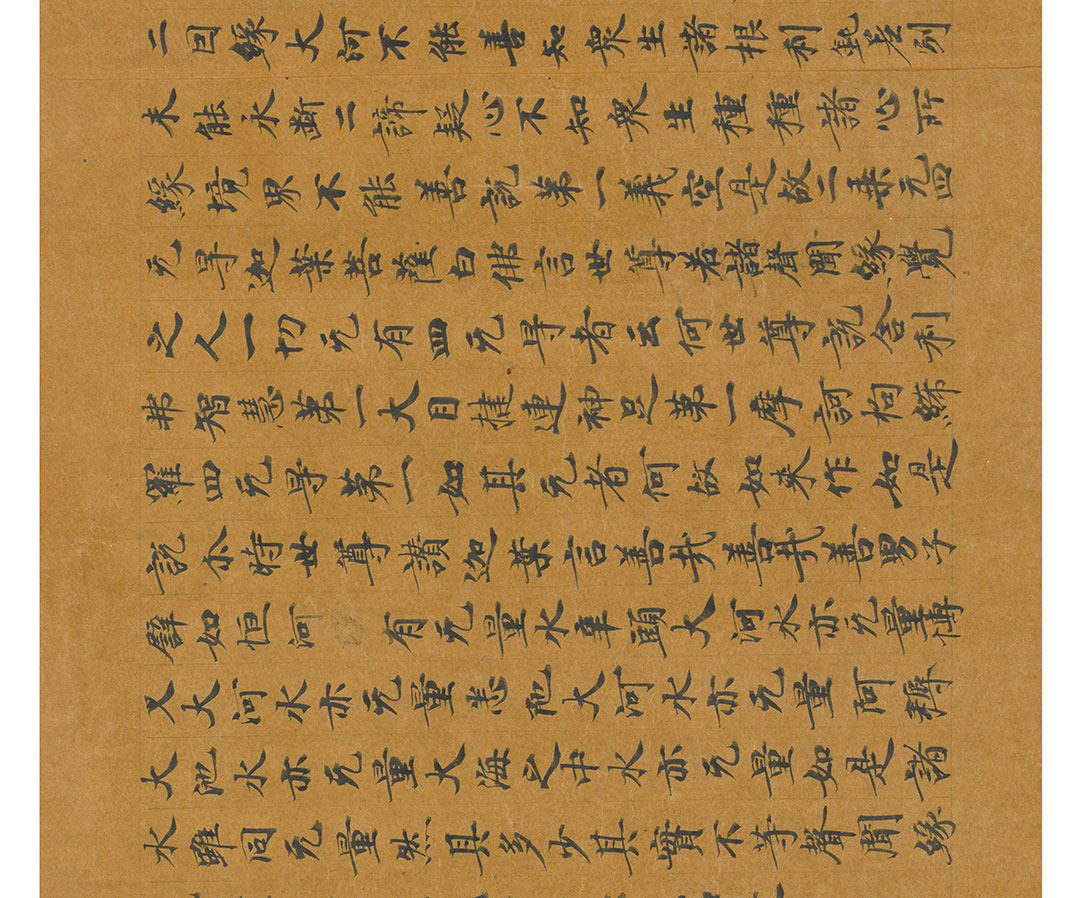 二因緣大河不能善知衆生諸根利鈍差別
未能永斷二諦疑心不知衆生種種諸心所
緣境界不能善說第一義空是故二乘无四
无导迦葉菩薩白佛言世尊若諸聲聞緣覺
之人一切无有四无导者云何世尊說舍利
弗智慧第一大目揵連神足第一摩訶拘絺
羅四无导第一如其无者何故如來作如是
說尒時世尊讚迦葉言善哉善哉善男子
譬如恒河有无量水辛頭大河水亦无量博
叉大河水亦无量悉陀大河水亦无量阿耨
大池水亦无量大海之中水亦无量如是諸
水雖同无量然其多少其實不等聲聞緣